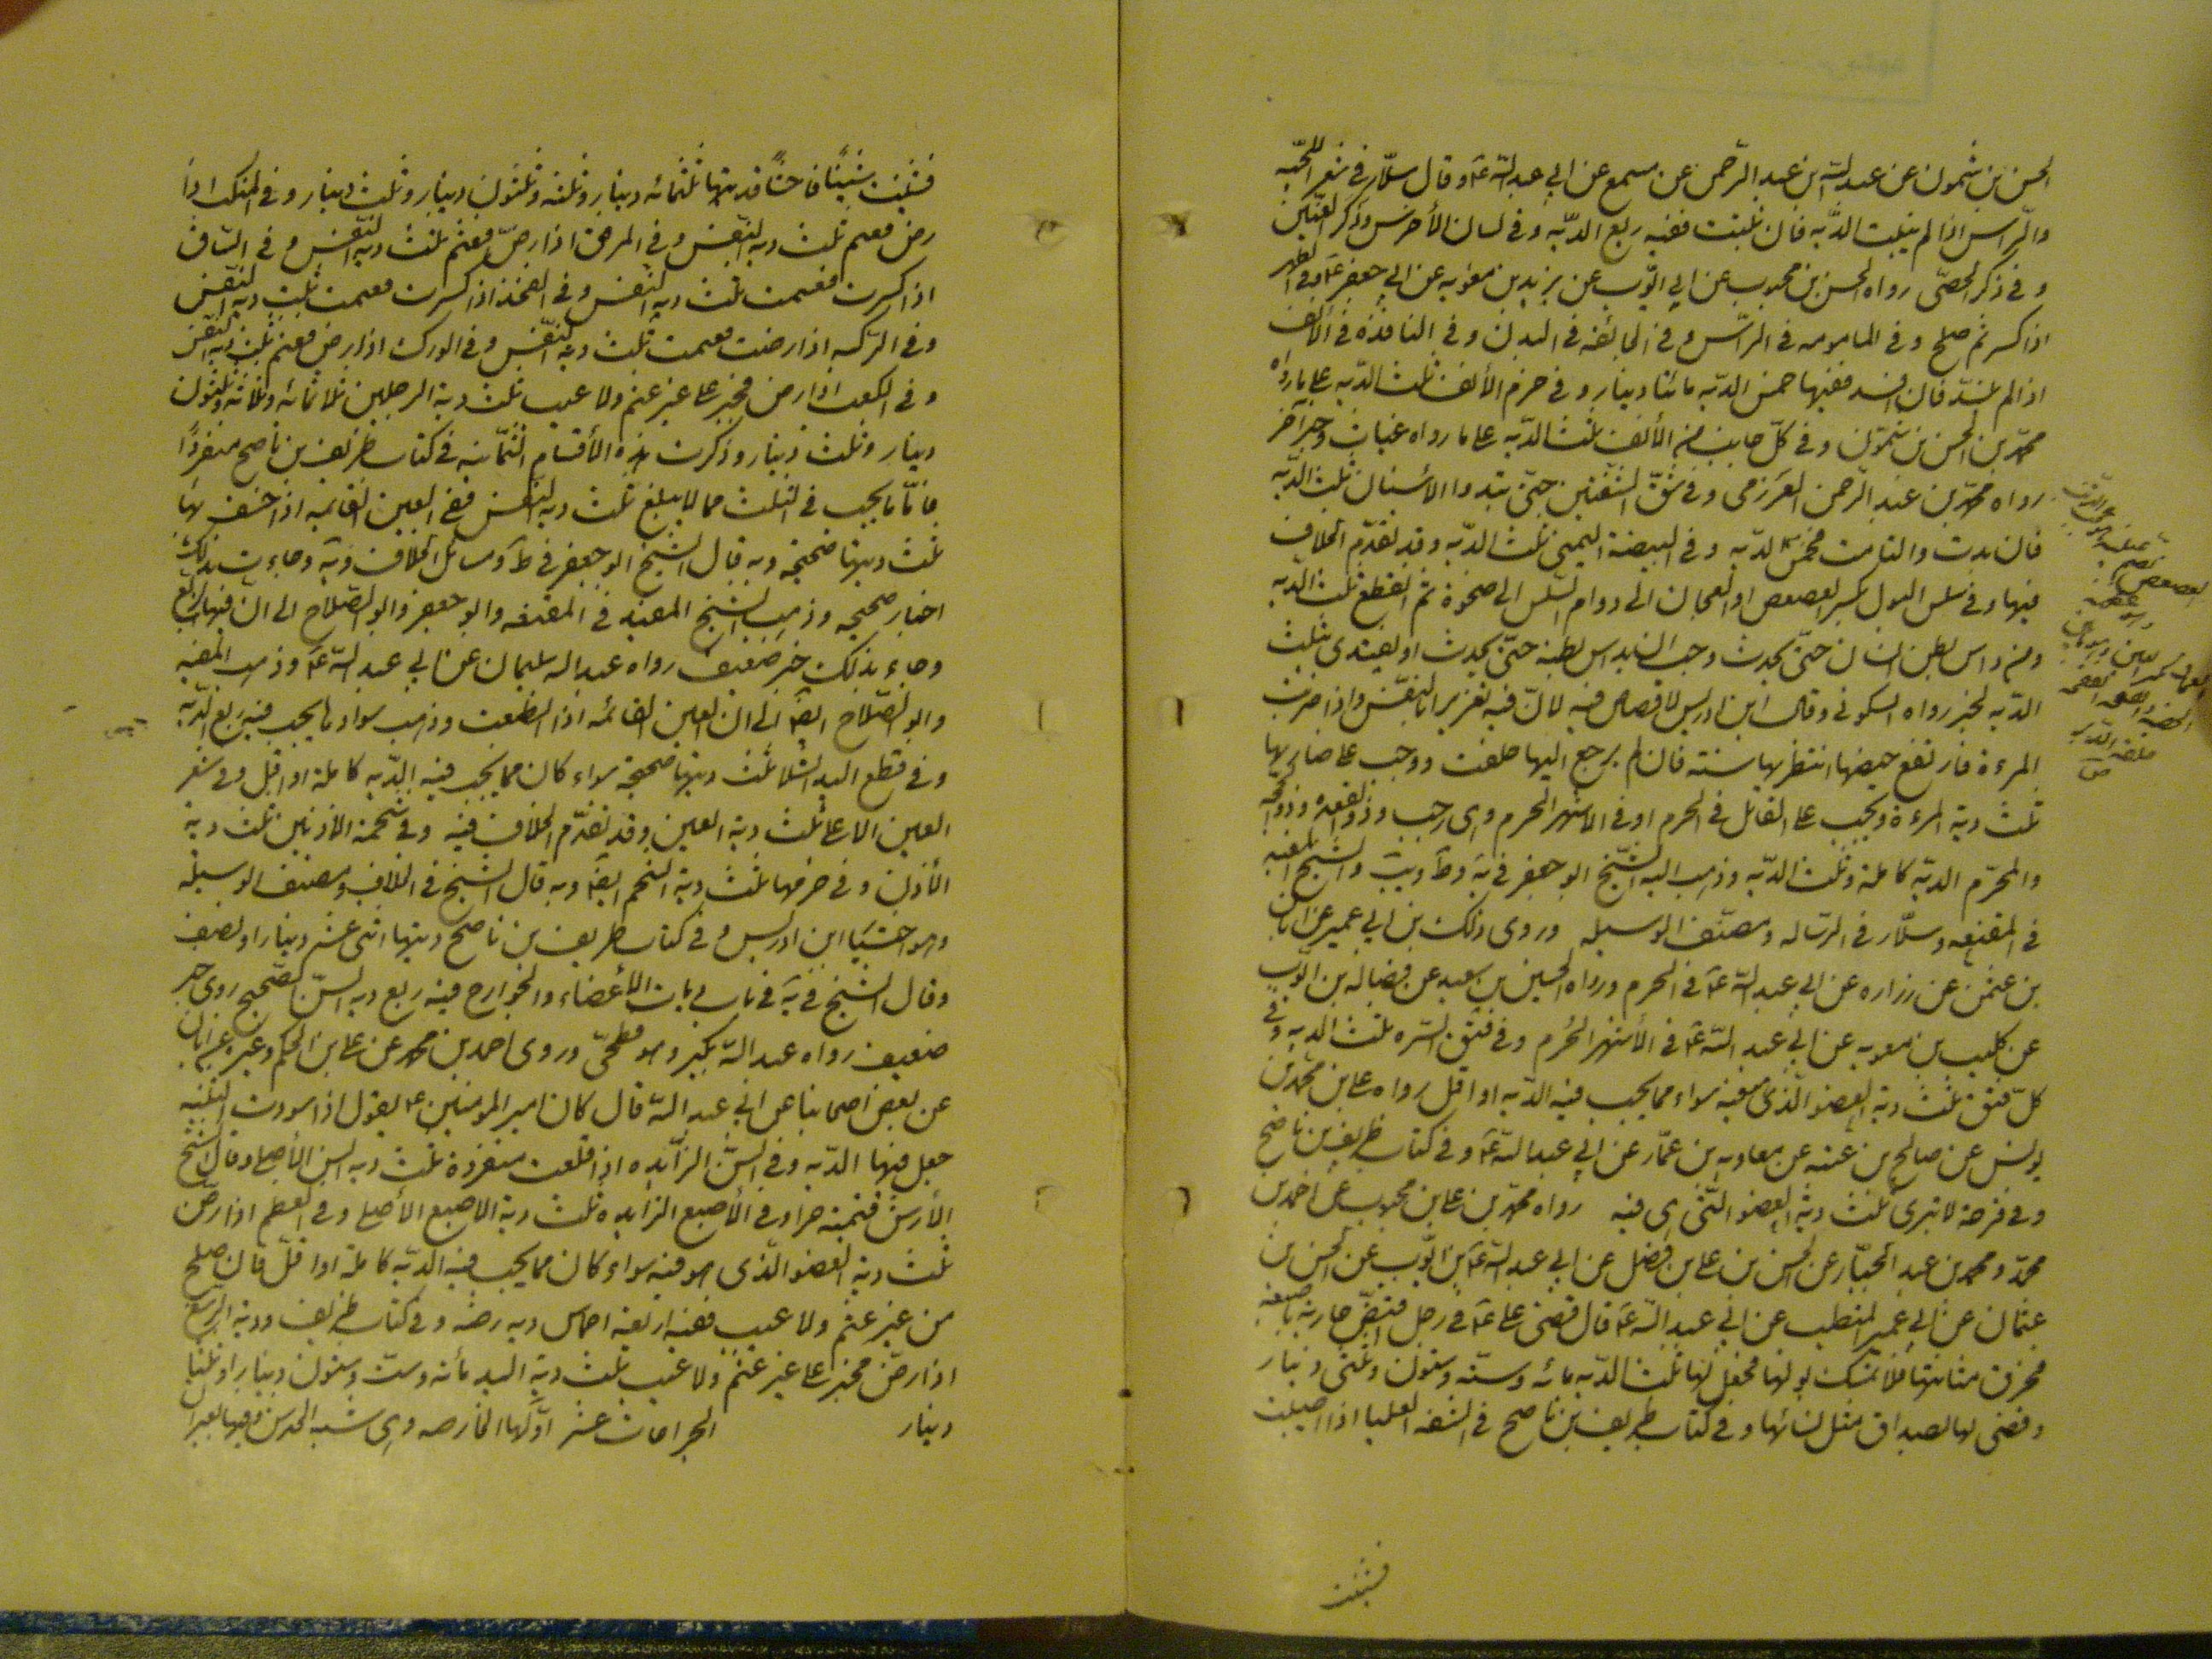 الحسن بن شمون عن عبد الله بن عبد الرحمن عن مسمع عن ابي عبد الله عم وقال سلار في شعر اللحية
والرأس اذا لم ينبت الدية فان نبتت ففيه ربع الدية وفي لسان الأخرس وذكر العنين
وفي ذكر الخصي رواه الحسن بن محبوب عن ابي ايوب عن بريد بن معويه عن ابي جعفر عم وفي الظهر
اذا كسر ثم صلح وفي المامومه في الرأس وفي الجائفه في البدن وفي النافذه في الأنف
اذا لم تنسد فان انسد ففيها خمس الديه مائتا دينار وفي خرم الأنف ثلث الديه على ما رواه
محمد بن الحسن بن شمون وفي كل جانب من الأنف ثلث الديه على ما رواه غياث وخبر آخر
رواه محمد بن عبد الرحمن العرزمي وفي شق الشفتين حتى تبدوا الأسنان ثلث الديه
فان بدت والتامت فخمس الديه وفي البيضة اليمنى ثلث الديه وقد تقدم الخلاف
فيها وفي سلس البول بكسر العصعص او العجان الى دوام السلس الى ضحوة ثم انقطع ثلث الديه
ومن داس بطن انسان حتى يحدث وجب ان يداس بطنه حتى يحدث او يفتدى بثلث
الديه لخبر رواه السكوني وقال ابن ادريس لا قصاص فيه لان فيه تغريرا بالنفس واذا ضربت
المرءة فارتفع حيضها انتظر بها سنة فان لم يرجع اليها حلفت ووجب على ضاربها
ثلث دية المرءة ويجب على القاتل في الحرم او في الاشهر الحرم وهي رجب وذو القعده وذو الحجه
والمحرم الدية كاملة وثلث الديه وذهب اليه الشيخ ابو جعفر في يه وط ويب والشيخ المفيد
في المقنعه وسلار في الرساله ومصنف الوسيله وروى ذلك بن ابي عمير عن ابان
بن عثمن عن زراره عن ابي عبد الله عم في الحرم ورواه الحسين بن سعيد عن فضاله بن ايوب
عن كليب بن معويه عن ابي عبد الله عم في الأشهر الحرم وفي فتق السره ثلث الديه وفي
كل فتق ثلث دية العضو الذي هي فيه سواء مما يجب فيه الديه او اقل رواه على بن محمد بن
يونس عن صالح بن عقبه عن معاويه بن عمار عن ابي عبد الله عم وفي كتاب ظريف بن ناصح
وفي قرحة لا تبرى ثلث دية العضو التى هى فيه رواه محمد بن على بن محبوب عن احمد بن
محمد ومحمد بن عبد الجبار عن الحسن بن على بن فضل عن ابي عبد الله عم بن ايوب عن الحسن بن
عثمان عن ابي عمير المتطبب عن ابي عبد الله عم قال قضى على عم في رجل افتض جارية باصبعه
فخرق مثانتها فلا تمسك بولها فجعل لها ثلث الديه مائه وستة وستون وثلثى دينار
وقضى لها لصداق مثل نسائها وفي كتاب ظريف بن ناصح في الشفه العليا اذا اصيبت
العصعص
فشينت
فشينت شينا فاحشا فديتها ثلثمائه دينار وثلثه وثلثون دينار وثلث دينار وفي المنكب اذا
رض فعثم ثلث ديه النفس وفي المرفق اذا رض فعثم ثلث ديه النفس وفي الساق
اذا كسرت فعثمت ثلث ديه النفس وفي الفخذ اذا كسرت فعثمت ثلث ديه النفس
وفي الركبه اذا رضت فعثمت ثلث ديه النفس وفي الورك اذا رض فعثم ثلث ديه النفس
وفي الكعب اذا رض فجبر على غير عثم ولا عيب ثلث دية الرجلين ثلاثمائه وثلاثه وثلثون
دينار وثلث دينار وذكرت هذه الأقسام الثمانيه في كتاب ظريف بن ناصح منفردا
فاما ما يجب في الثلث مما لا يبلغ ثلث ديه النفس ففي العين القائمه اذا خسف بها
ثلث ديتها صحيحه وبه قال الشيخ ابو جعفر في ط ومسائل الخلاف ويه وجاءت بذلك
اخبار صحيحه وذهب الشيخ المفيد في المقنعه وابو جعفر وابو الصلاح الى ان فيها ربع
وجاء بذلك خبر ضعيف رواه عبد الله سليمان عن ابي عبد الله عم وذهب المفيد
وابو الصلاح ايضا الى ان العين القائمه اذا انطبعت وذهب سوادها يجب فيه ربع الديه
وفي قطع اليد الشلا ثلث ديتها صحيحة سواء كان مما يجب فيه الديه كاملة او اقل وفي شفر
العين الاعلى ثلث دية العين وقد تقدم الخلاف فيه وفي شحمة الاذنين ثلث دية
الأذن وفي خرمها ثلث دية الشحم ايضا وبه قال الشيخ في الخلاف ومصنف الوسيله
وهو اختيار ابن ادريس وفي كتاب ظريف بن ناصح ديتها اثنى عشر دينارا ونصف
وقال الشيخ في يه في باب ديات الأعضاء والجوارح فيه ربع ديه السن الصحيح روى خبر
ضعيف رواه عبد الله بكير وهو فطحى وروى احمد بن محمد عن على بن الحكم وغيره عن ابان
عن بعض اصحابنا عن ابي عبد الله قال كان امير المومنين عم يقول اذا اسودت الثنيه
جعل فيها الديه وفي السن الزائده اذا قلعت منفردة ثلث ديه السن الأصلى وقال الشيخ
الأرش وفي الأصبع الزايده ثلث دية الاصبع الأصلى وفي العظم اذا رض
ثلث دية العضو الذى هو فيه سواء كان مما يجب فيه الديه كاملة او اقل فان صلح
من غير عثم ولا عيب ففيه اربعة اخماس ديه رضه وفي كتاب ظريف ودية الرسغ
اذا رض فجبر على غير عثم ولا عيب ثلث دية اليد مأئة وست وستون دينارا وثلثا
دينار الجراحات عشر اولها الخارصه وهى شبه الخدش وفيها بعير